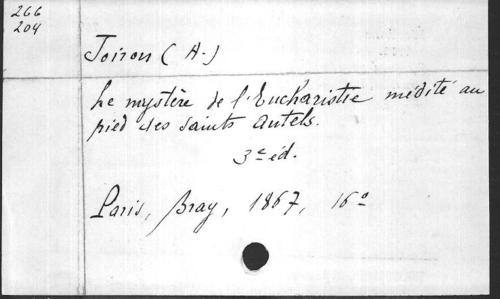 266
204
Toiron (A.)
Le mystère de l'Eucharistie médité au
pied des saints autels.
3e éd.
Paris, Bray, 1867, 16o